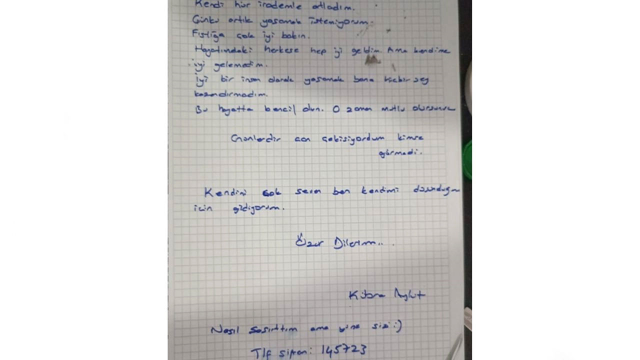 Kendi hür irademle atladım.
Çünkü artık yaşamak istemiyorum.
Fıstığa çok iyi bakın.
Hayatımdaki herkese hep iyi geldim Ama kendime
iyi gelemedim.
İyi bir insan olarak yaşamak bana hiçbir şey
kazandırmadı.
Bu hayatta bencil olun. O zaman mutlu olursunuz
can çekişiyordum kimse
görmedi.
Kendini çok seven ben kendimi
için gidiyorum.
Özür Dilerim..
Kübra Aykut
Nasıl şaşırttım ama yine sizi :)
Tlf şifrem: 145723